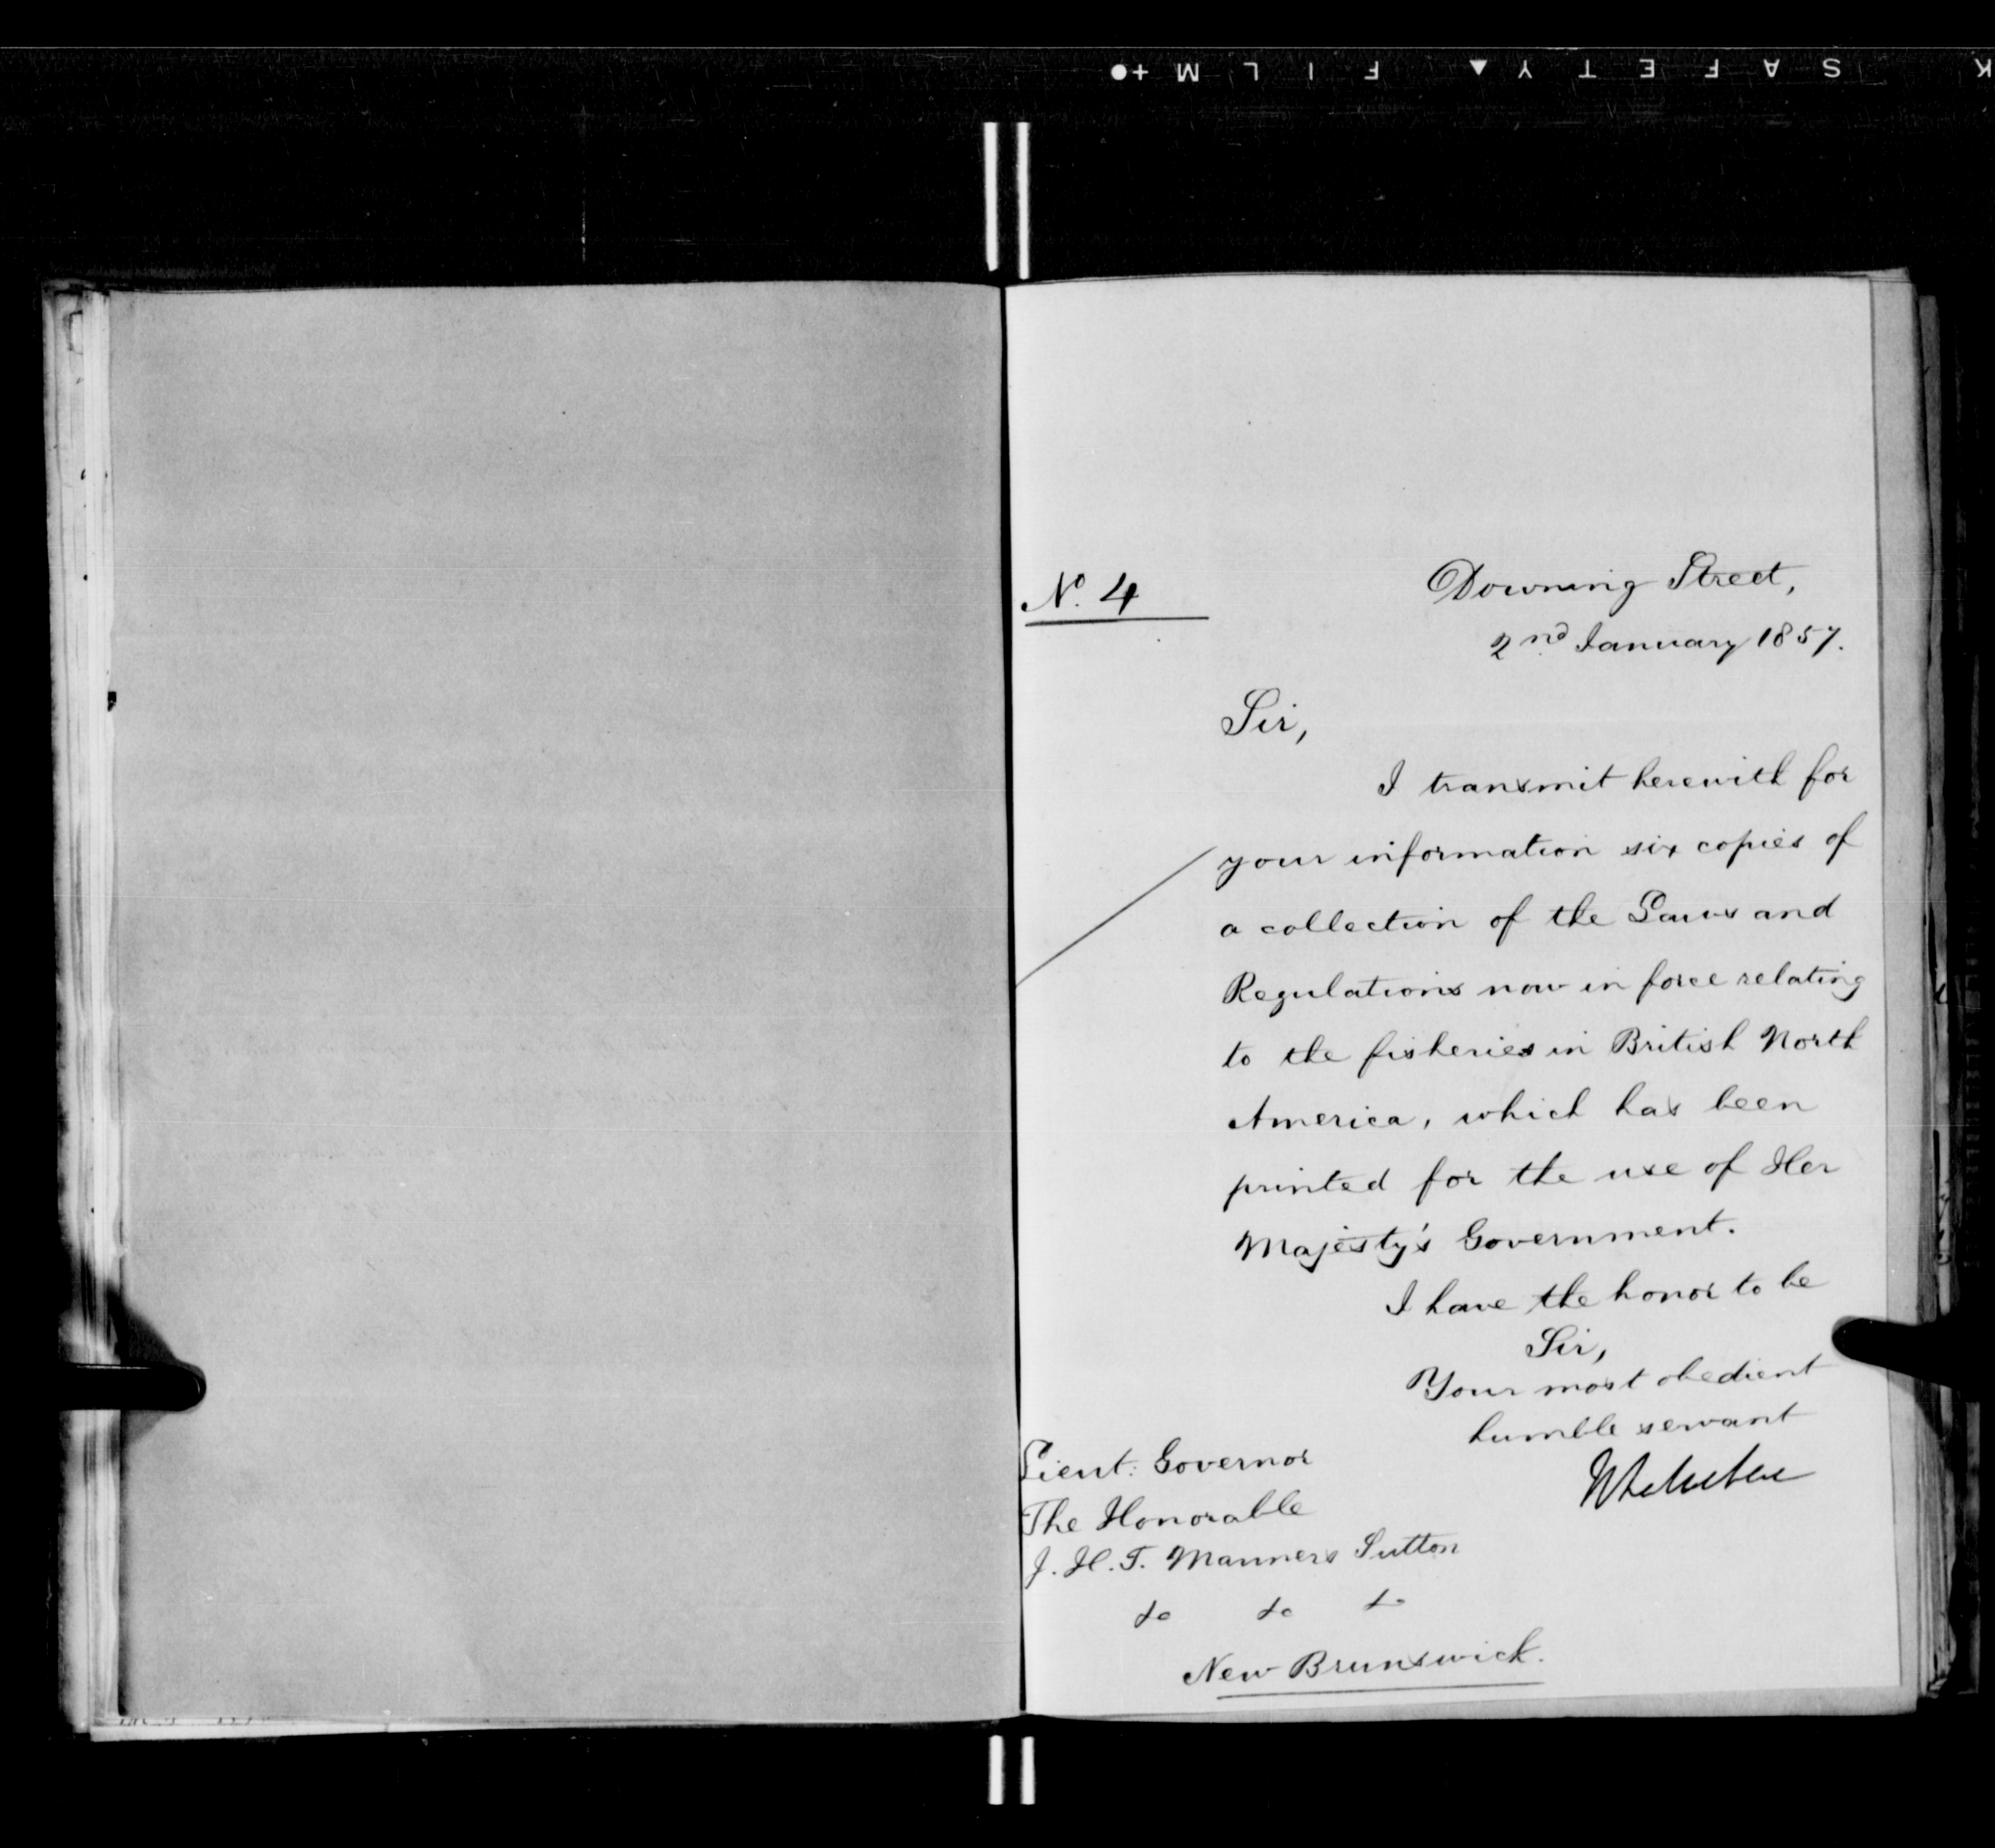 SAFETY▲FILM+●
K
No. 4
Downing Street,
2nd January 1857.
Sir,
I transmit herewith for
your information six copies of
a collection of the Laws and
Regulations now in force relating
to the fisheries in British North
America, which has been
printed for the use of Her
Majesty's Government.
I have the honor to be
Sir,
Your most obedient
humble servant
Lieut: Governor
The Honorable
J. H. T. Manners Sutton
&c &c &c
New Brunswick.